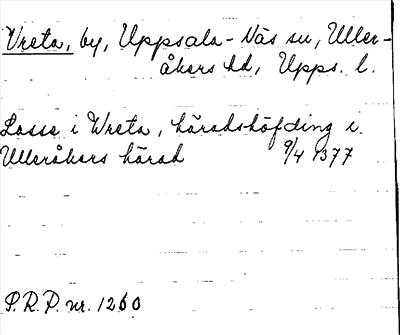 Vreta, by, Uppsala-Näs sn, Uller-
åkers hd, Upps. l.
Lasse i Wreta, häradshöfding i
Ulleråkers härad 9/4 1377
P.R.P. nr. 1260